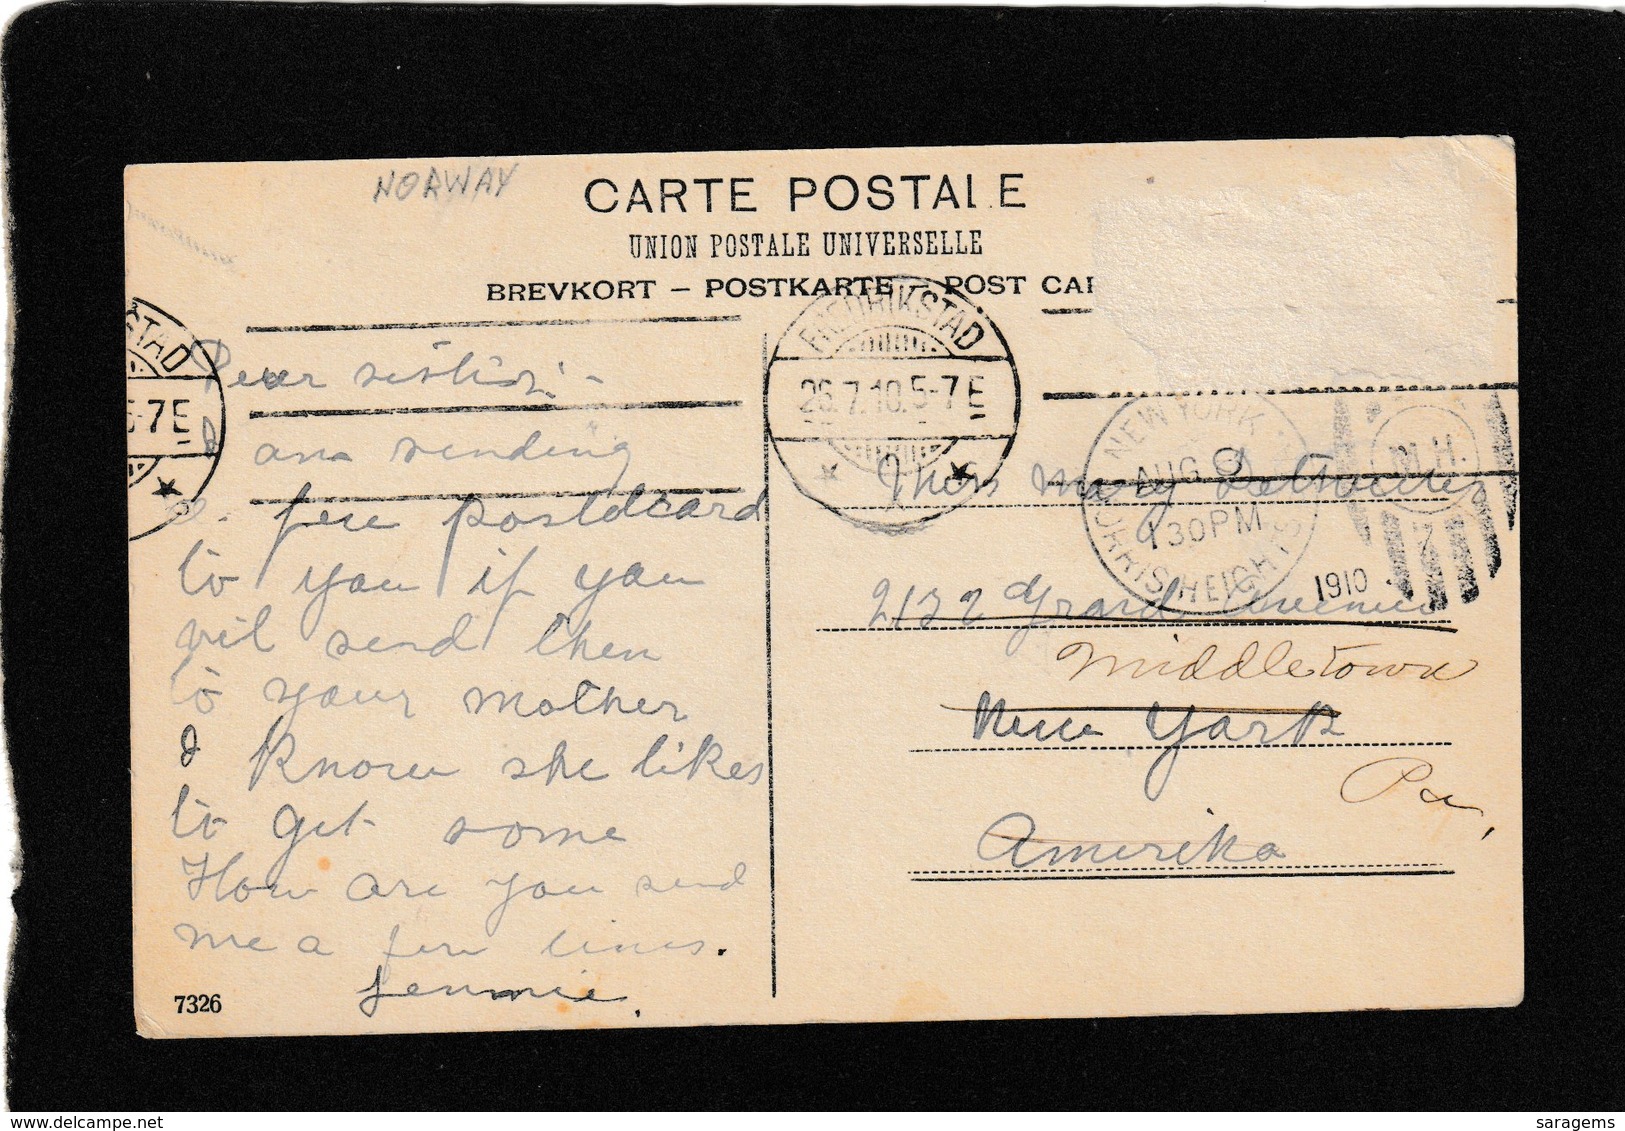 NORWAY
CARTE POSTALE
UNION POSTALE UNIVERSELLE
BREVKORT – POSTKARTE – POST CAR
FREDRIKSTAD
26.7.10.5-7E
STAD
5-7E
Dear
I
am sending
a few postdcard
to you if you
vil send then
to your mother
I know she likes
to get some
How are you send
me a few lines.
Jennie.
7326
NEW YORK
AUG 9
130PM
MORRIS HEIGHTS
1910
M.H.
Miss Mary
2132 Grand Avenue
Middletown
New York
Pa,
Amerika
saragems